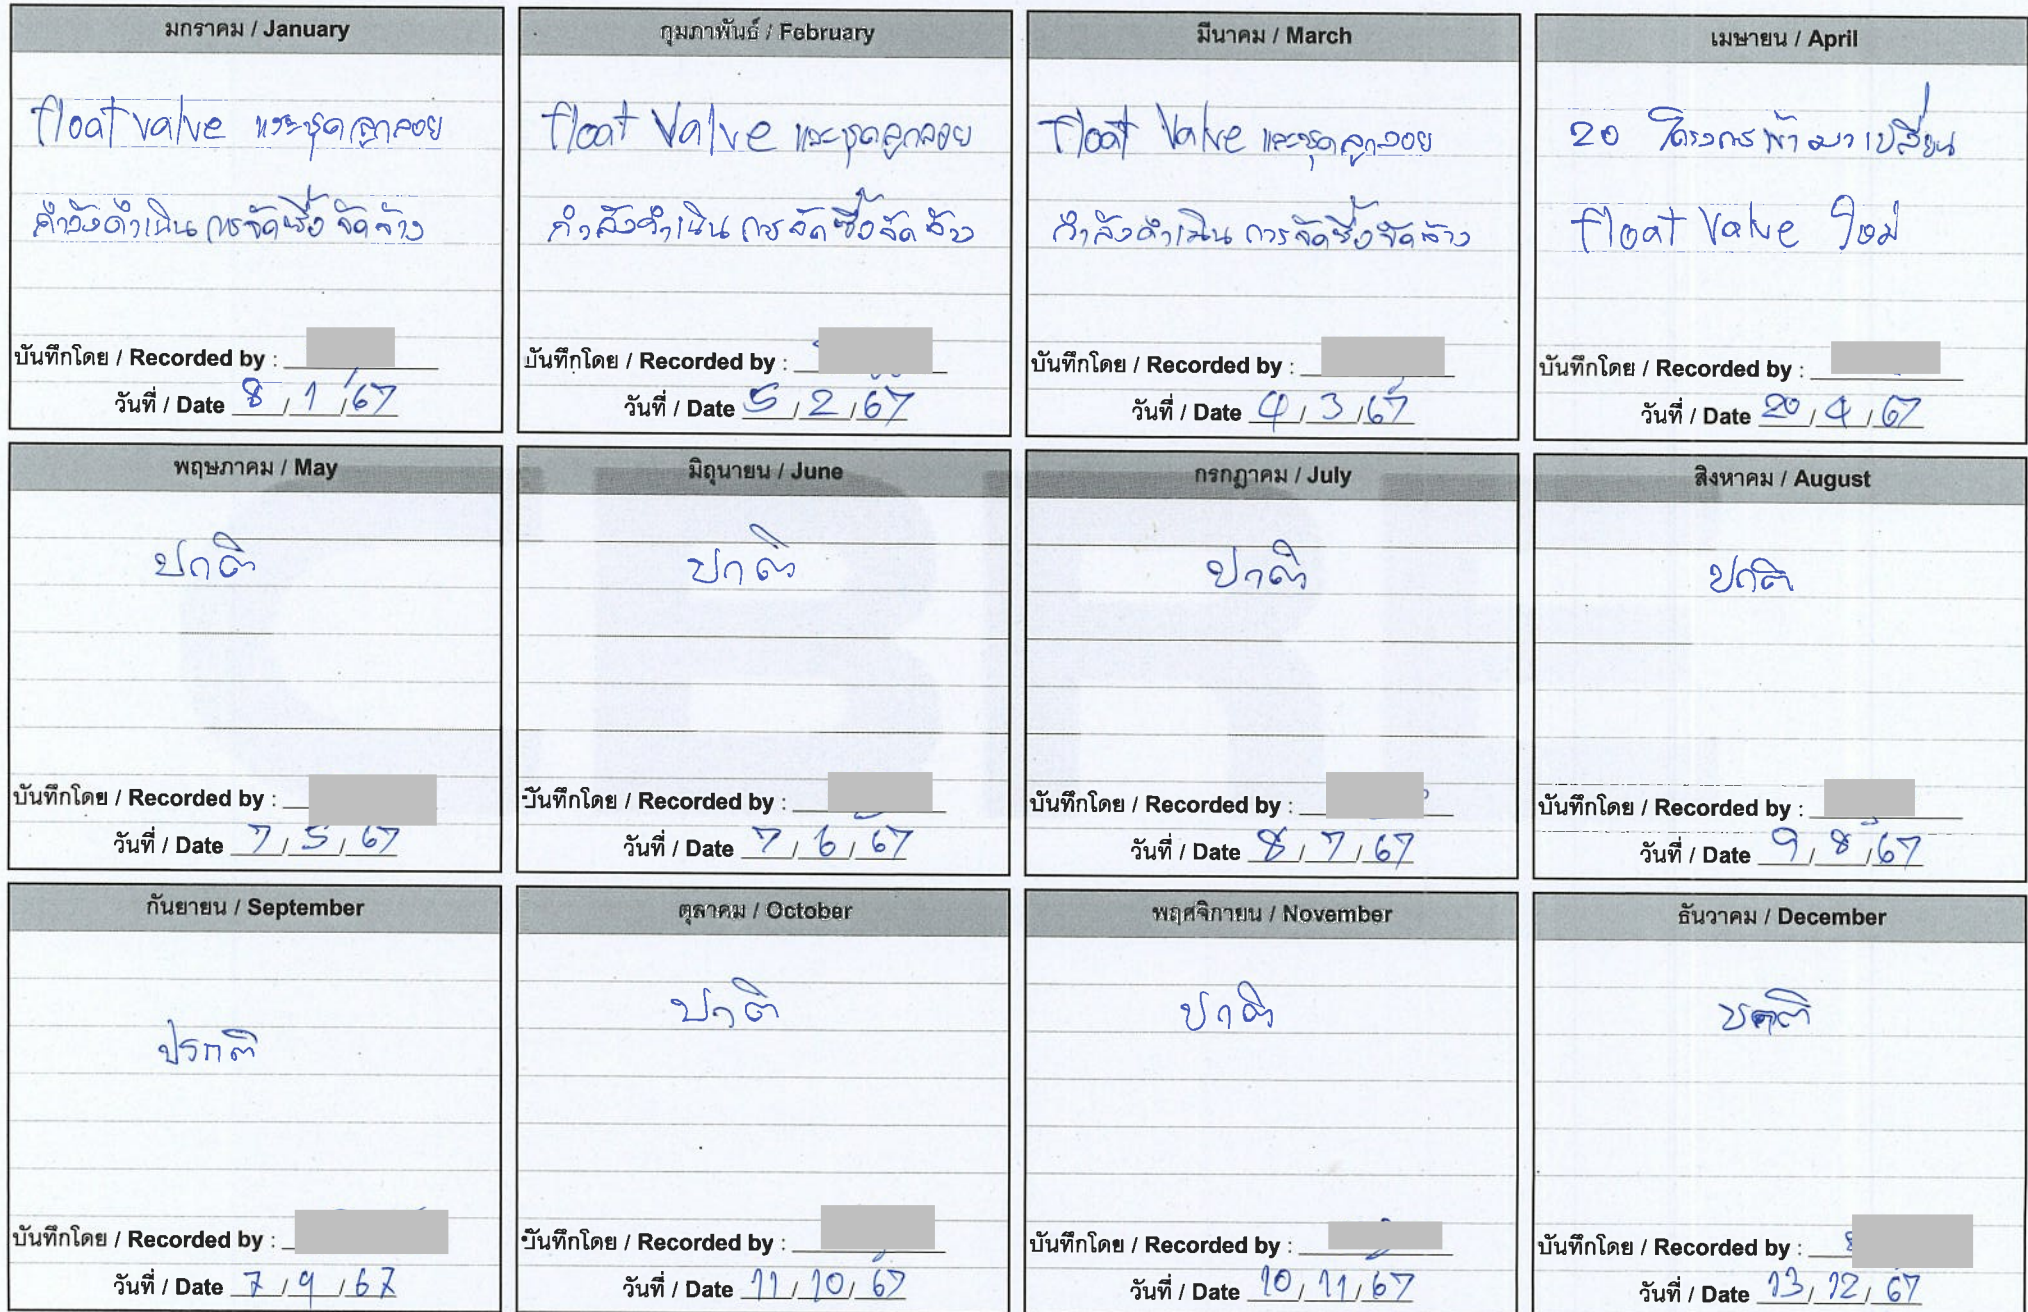 มกราคม / January
float valve และชุดลูกลอย
กำลังดำเนินการจัดซื้อจัดจ้าง
บันทึกโดย / Recorded by :
วันที่ / Date 8 / 1 / 67
กุมภาพันธ์ / February
float Valve และชุดลูกลอย
กำลังดำเนินการจัดซื้อจัดจ้าง
บันทึกโดย / Recorded by :
วันที่ / Date 5 / 2 / 67
มีนาคม / March
float Valve และชุดลูกลอย
กำลังดำเนินการจัดซื้อจัดจ้าง
บันทึกโดย / Recorded by :
วันที่ / Date 4 / 3 / 67
เมษายน / April
20 โครงการ มาเปลี่ยน
float Valve ใหม่
บันทึกโดย / Recorded by :
วันที่ / Date 20 / 4 / 67
พฤษภาคม / May
ปกติ
บันทึกโดย / Recorded by :
วันที่ / Date 7 / 5 / 67
มิถุนายน / June
ปกติ
บันทึกโดย / Recorded by :
วันที่ / Date 7 / 6 / 67
กรกฎาคม / July
ปกติ
บันทึกโดย / Recorded by :
วันที่ / Date 8 / 7 / 67
สิงหาคม / August
ปกติ
บันทึกโดย / Recorded by :
วันที่ / Date 9 / 8 / 67
กันยายน / September
ปรกติ
บันทึกโดย / Recorded by :
วันที่ / Date 7 / 9 / 67
ตุลาคม / October
ปกติ
บันทึกโดย / Recorded by :
วันที่ / Date 11 / 10 / 67
พฤศจิกายน / November
ปกติ
บันทึกโดย / Recorded by :
วันที่ / Date 10 / 11 / 67
ธันวาคม / December
ปกติ
บันทึกโดย / Recorded by :
วันที่ / Date 13 / 12 / 67